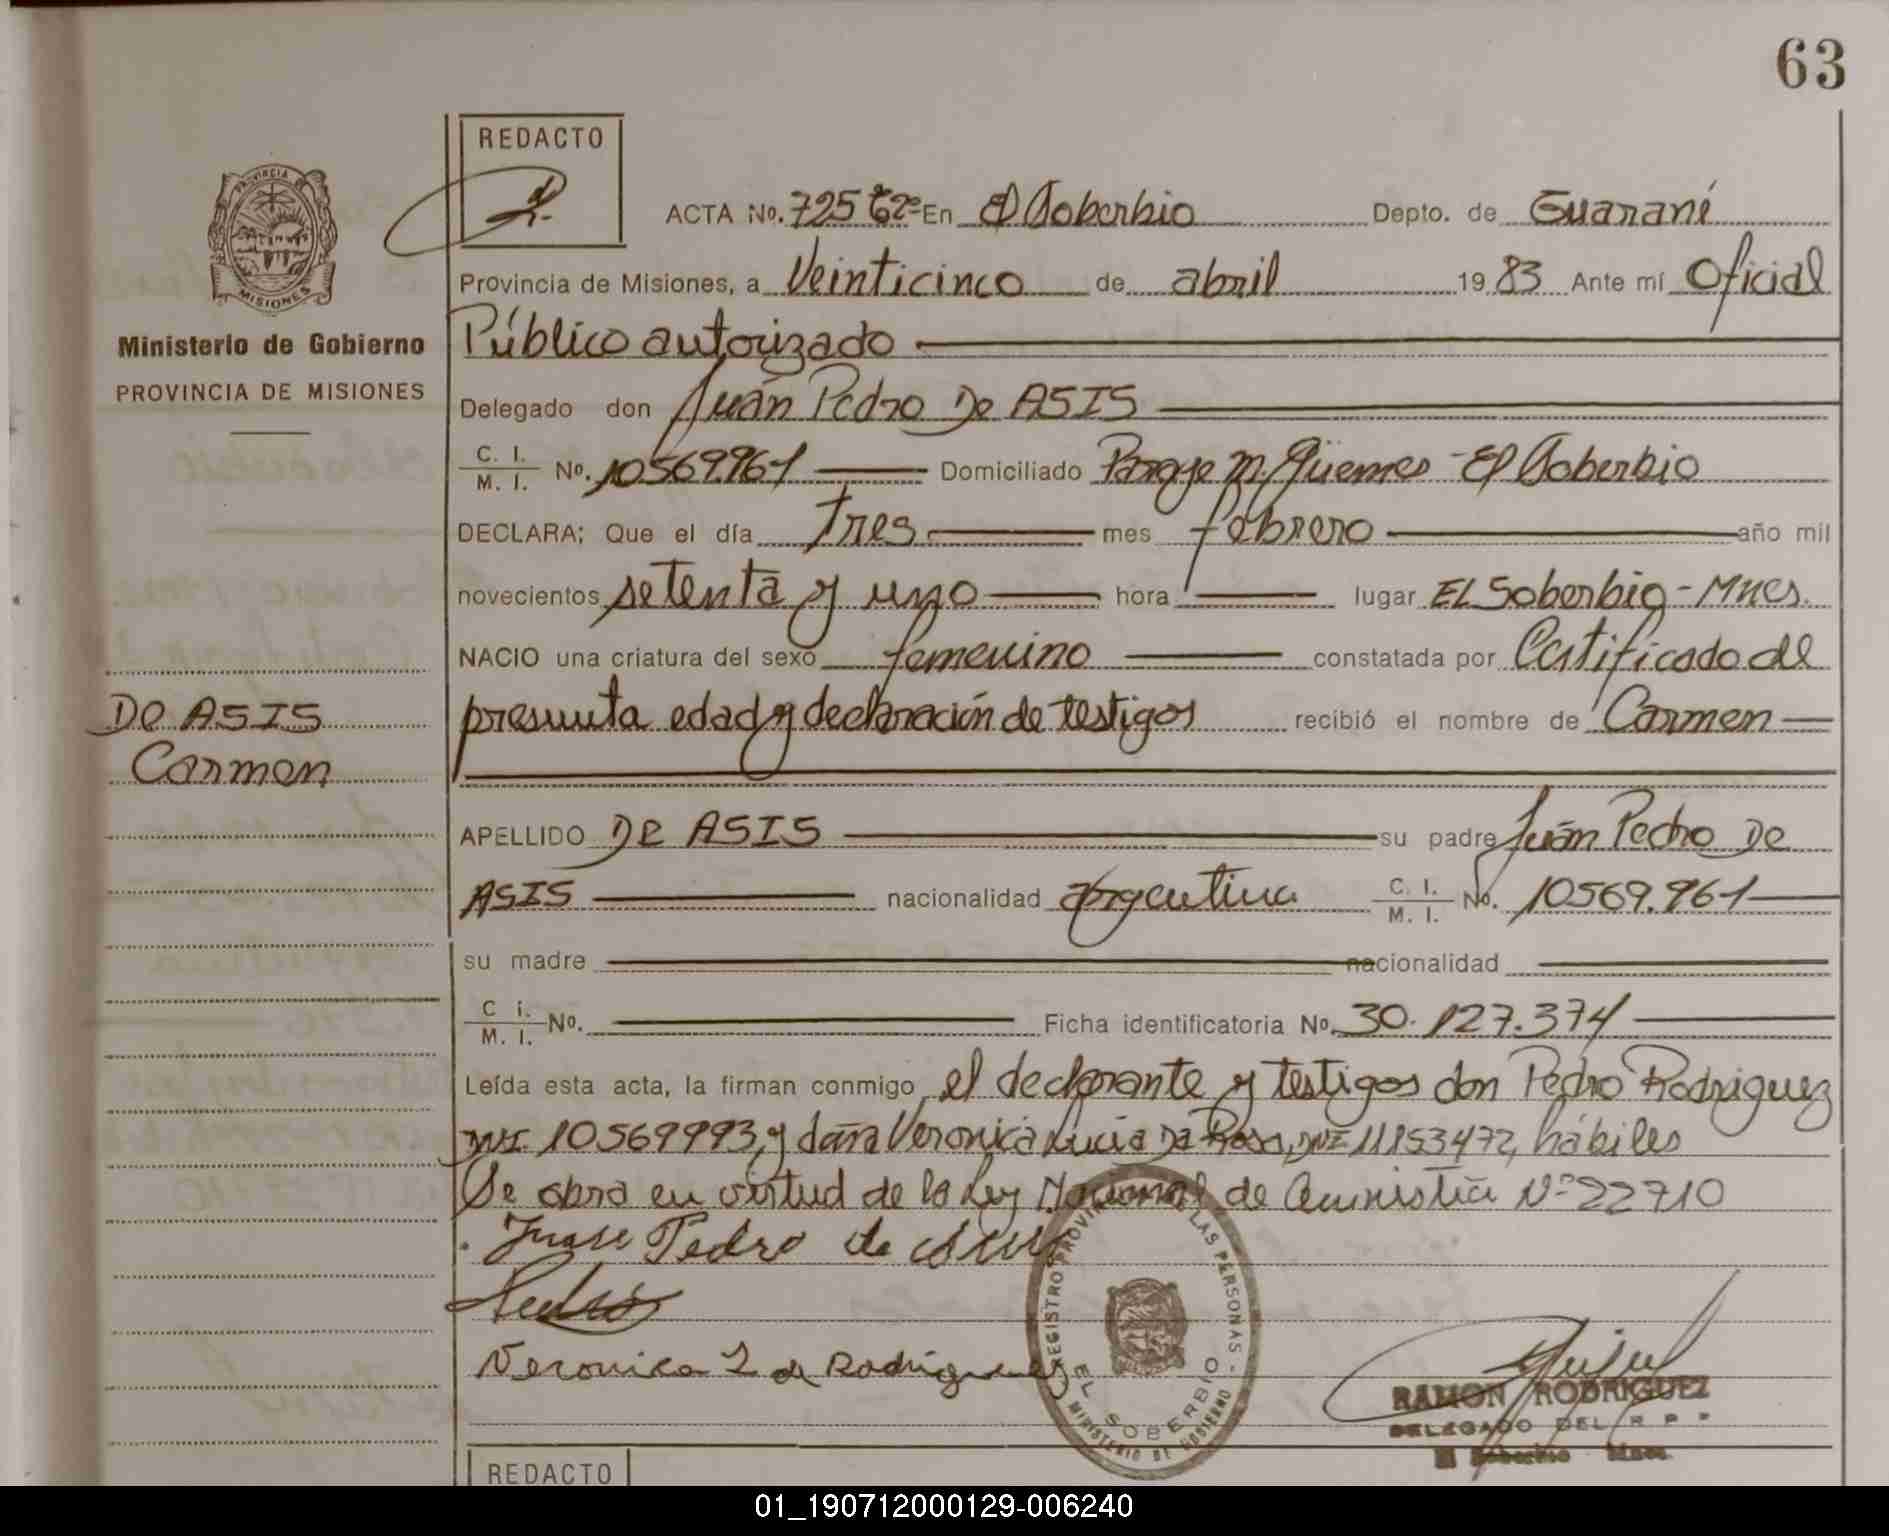 63
REDACTO
ACTA No. 725 Tº 2º En El Soberbio Depto. de Guaraní
PROVINCIA DE MISIONES
Provincia de Misiones, a Veinticinco de abril 1983 Ante mí Oficial
Ministerio de Gobierno
PROVINCIA DE MISIONES
Público autorizado
Delegado don Juán Pedro De ASIS
C. I. / M. I. No. 10569.961 Domiciliado Paraje M. Güemes - El Soberbio
DECLARA; Que el día Tres mes febrero año mil
novecientos setenta y uno hora lugar EL Soberbio - Mnes.
NACIO una criatura del sexo femenino constatada por Certificado de
De ASIS
presunta edad y declaración de testigos recibió el nombre de Carmen
Carmen
APELLIDO De ASIS su padre Juán Pedro De
ASIS nacionalidad argentina C. I. / M. I. No. 10569.961
su madre nacionalidad
C. I. / M. I. No. Ficha identificatoria No. 30.127.374
Leída esta acta, la firman conmigo, el declarante y testigos don Pedro Rodriguez
DNI. 10569993, y doña Veronica Lucia Da Rosa, DNI 11153472, hábiles
Se obra en virtud de la Ley Nacional de amnistía Nº 22710
Juan Pedro de Asis
Veronica L de Rodriguez
REGISTRO PROVINCIAL DE LAS PERSONAS -
EL SOBERBIO
MINISTERIO DE GOBIERNO
RAMON RODRIGUEZ
DELEGADO DEL R P P
El Soberbio Mnes.
REDACTO
01_190712000129-006240